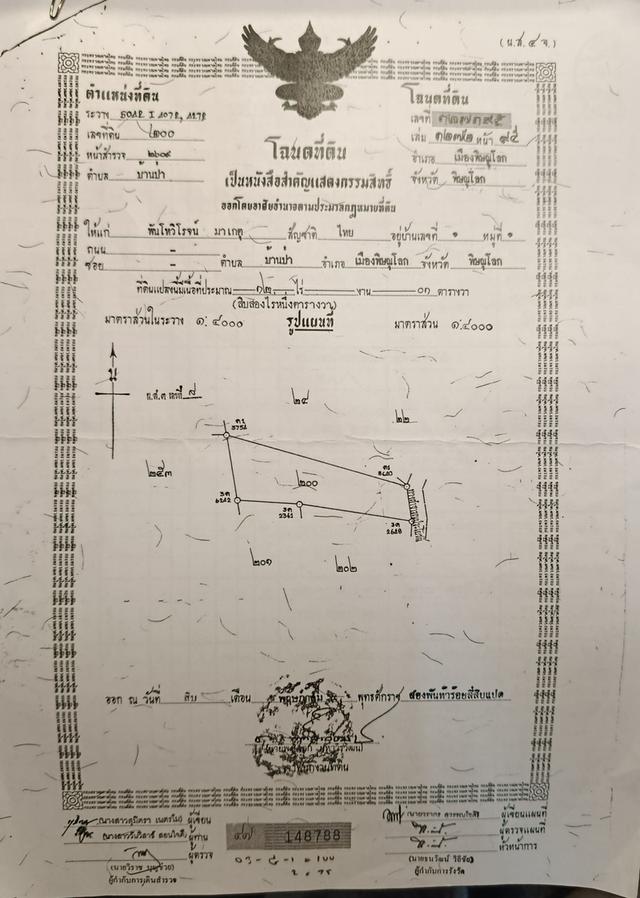 (น.ส.๔ จ.)
ตำแหน่งที่ดิน
ระวาง 5042 I 1072, 1272
เลขที่ดิน ๒๐๐
หน้าสำรวจ ๒๖๐๙
ตำบล บ้านป่า
โฉนดที่ดิน
เลขที่ ๑๒๗๑๙๕
เล่ม ๑๒๗๒ หน้า ๙๕
อำเภอ เมืองพิษณุโลก
จังหวัด พิษณุโลก
โฉนดที่ดิน
เป็นหนังสือสำคัญแสดงกรรมสิทธิ์
ออกโดยอาศัยอำนาจตามประมวลกฎหมายที่ดิน
ให้แก่ พันโทวิโรจน์ มาเกตุ สัญชาติ ไทย อยู่บ้านเลขที่ ๑ หมู่ที่ ๑
ถนน -
ซอย - ตำบล บ้านป่า อำเภอ เมืองพิษณุโลก จังหวัด พิษณุโลก
ที่ดินแปลงนี้มีเนื้อที่ประมาณ ๑๒ ไร่ - งาน ๐๑ ตารางวา
(สิบสองไร่หนึ่งตารางวา)
มาตราส่วนในระวาง ๑:๔๐๐๐ รูปแผนที่ มาตราส่วน ๑:๔๐๐๐
น
น.ส.๓ เลขที่
๒๔
๒๒
3752
๒๕๓
๒๐๐
6212
2341
2628
๒๐๑
๒๐๒
ออก ณ วันที่ สิบ เดือน พฤษภาคม พุทธศักราช สองพันห้าร้อยสี่สิบแปด
เจ้าพนักงานที่ดิน
(นางสาวสุมิตรา เนตรโม) ผู้เขียน
ผู้ทาน
ผู้ตรวจ
ผู้กำกับการเดินสำรวจ
๔๗ 148788
ผู้เขียนแผนที่
ผู้ตรวจแผนที่
หัวหน้าการ
(นายธนวัฒน์ วิธีชัย)
ผู้กำกับการรังวัด